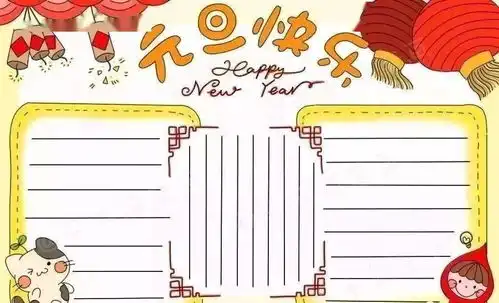 元旦快乐
Happy
New Year